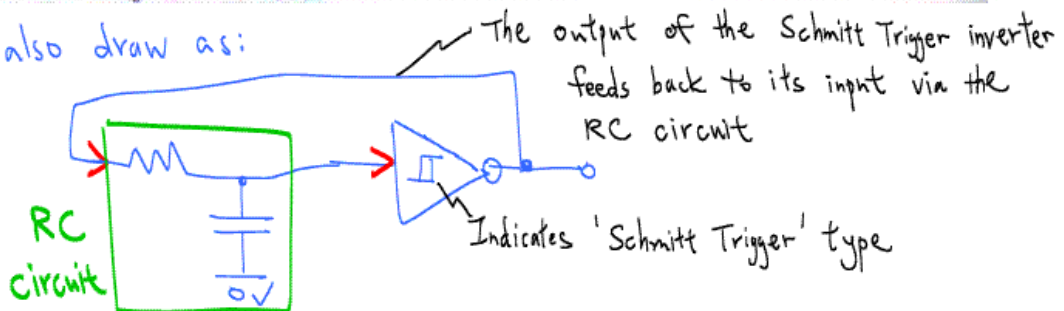 also draw as:
The output of the Schmitt Trigger inverter
feeds back to its input via the
RC circuit
RC
circuit
0V
Indicates 'Schmitt Trigger' type